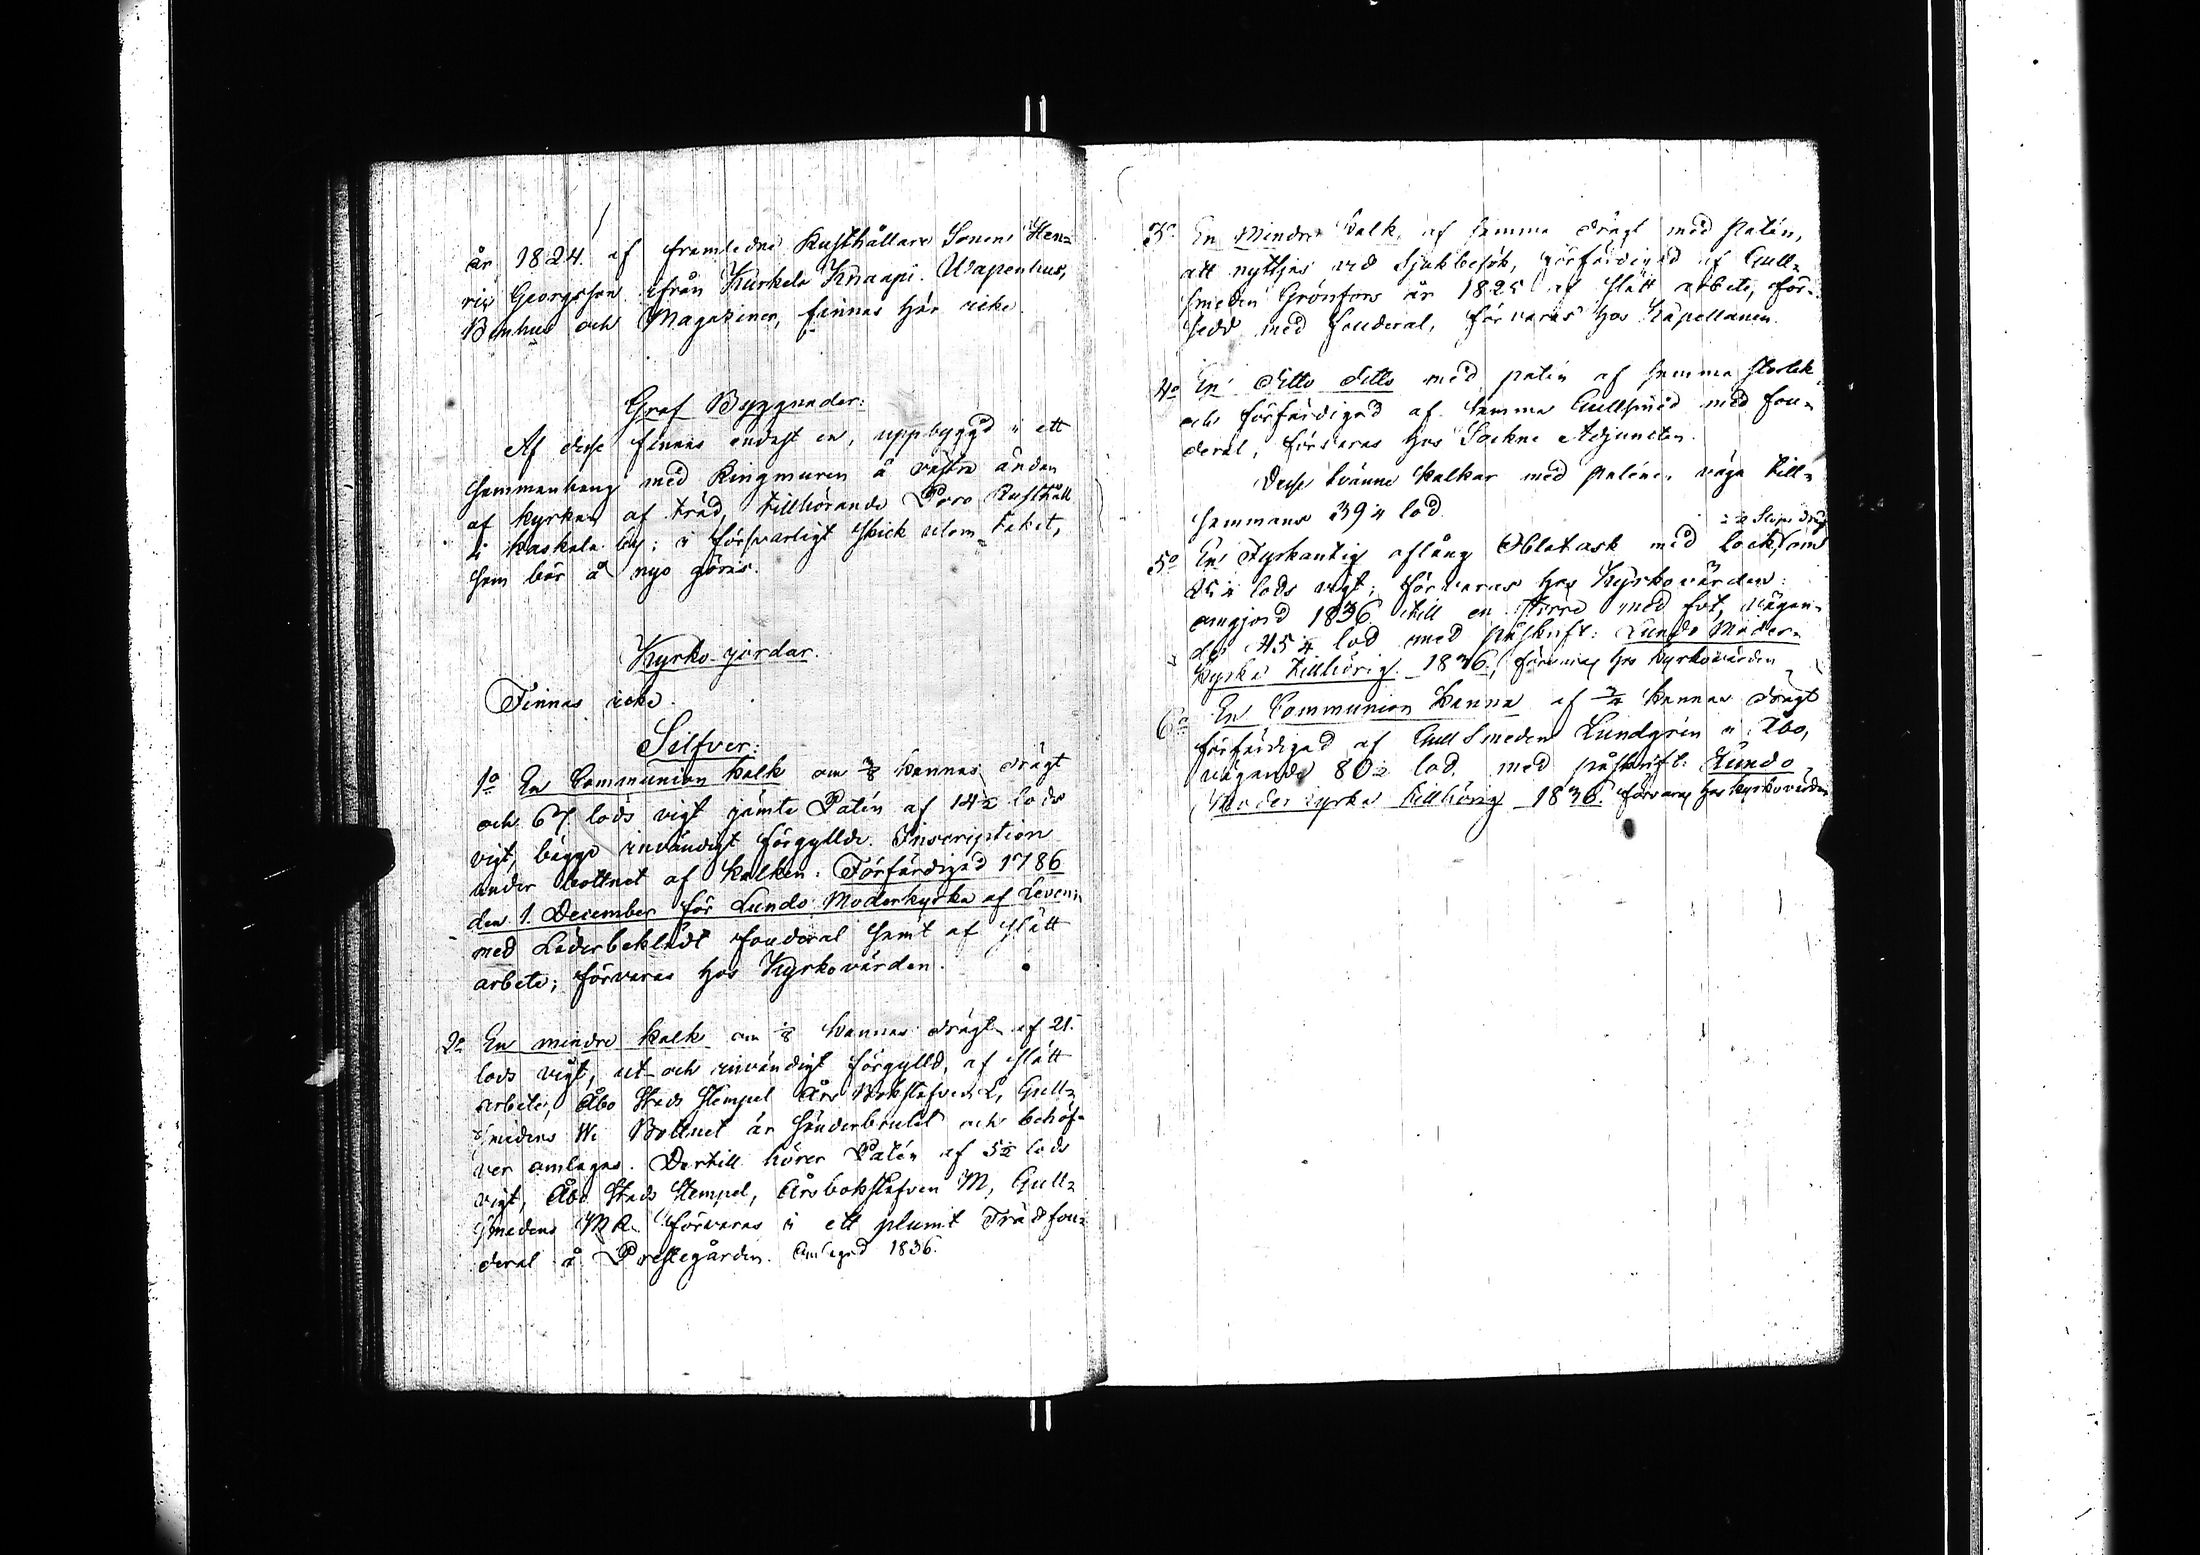 år 1824 af framledne Rusthållare Sonen Hen-
ric Georgsson ifrån Kurkela Knaapi. Wapenhus,
Benhus och Magaziner, finnas här icke.
Graf Byggnader:
Af desse finnes endast en, uppbyggd i ett
sammanhang med Ringmuren å västra ändan
af kyrkan af träd, tillhörande Poro Rusthåll
i Kaskala by; i försvarligt skick utom taket,
som bör å nyo göras.
Kyrko-jordar.
Finnas icke.
Silfver:
1o En Communion kalk om 3/8 kannas drägt
och 67 lods vigt jämte Patén af 14 1/2 lods
vigt, bägge invändigt förgyllde. Inscription
under bottnet af kalken: Förfärdigad 1786
den 1. December för Lundo Moderkyrka af Leven;
med Läderbeklädt fouderal samt af slätt
arbete; förvaras hos Kyrkovärden.
2o En mindre kalk om 1/8 kannas drägt af 21
lods vigt, ut- och invändigt förgylld, af slätt
arbete, Åbo Stads Stempel Års Bokstafven L, Gull-
smedens Bottnet är sönderbrutet och behöf-
ver omlagas. Dertill hörer Patén af 5 1/2 lods
vigt, Åbo Stads Stempel, Årsbokstafven M, Gull-
smedens förvaras i ett plumt Träd fou-
deral å Prestegården. Omlagad 1836.
3o En Mindre kalk af samma drägt med Patén,
att nyttjas ved Sjukbesök, förfärdigad af Gull-
smeden Grönfors år 1825 af slätt arbete, för-
sedd med fouderal, förvaras hos Kapellanen.
4o En ditto ditto med patén af samma storlek
och förfärdigad af samma Gullsmed med fou-
deral, förvaras hos Sockne Adjuncten.
Desse tvänne kalkar med paténer väga till-
sammans 39 1/4 lod.
5o En Fyrkantig aflång Oblatask med lock, om
lods vigt; förvaras hos Kyrkovärden:
omgjord 1836 till en större med fot, vägan-
de 45 1/4 lod med påskrift: Lundo Moder-
kyrka tillhörig. 1836, förvaras hos Kyrkovärden
6o En Communion kanna af kannas drägt
förfärdigad af Gull Smeden Lundgrén i Åbo,
vägande 80 1/2 lod med påskrift: Lundo
Moderkyrka tillhörig 1836. förvaras hos kyrkovärden